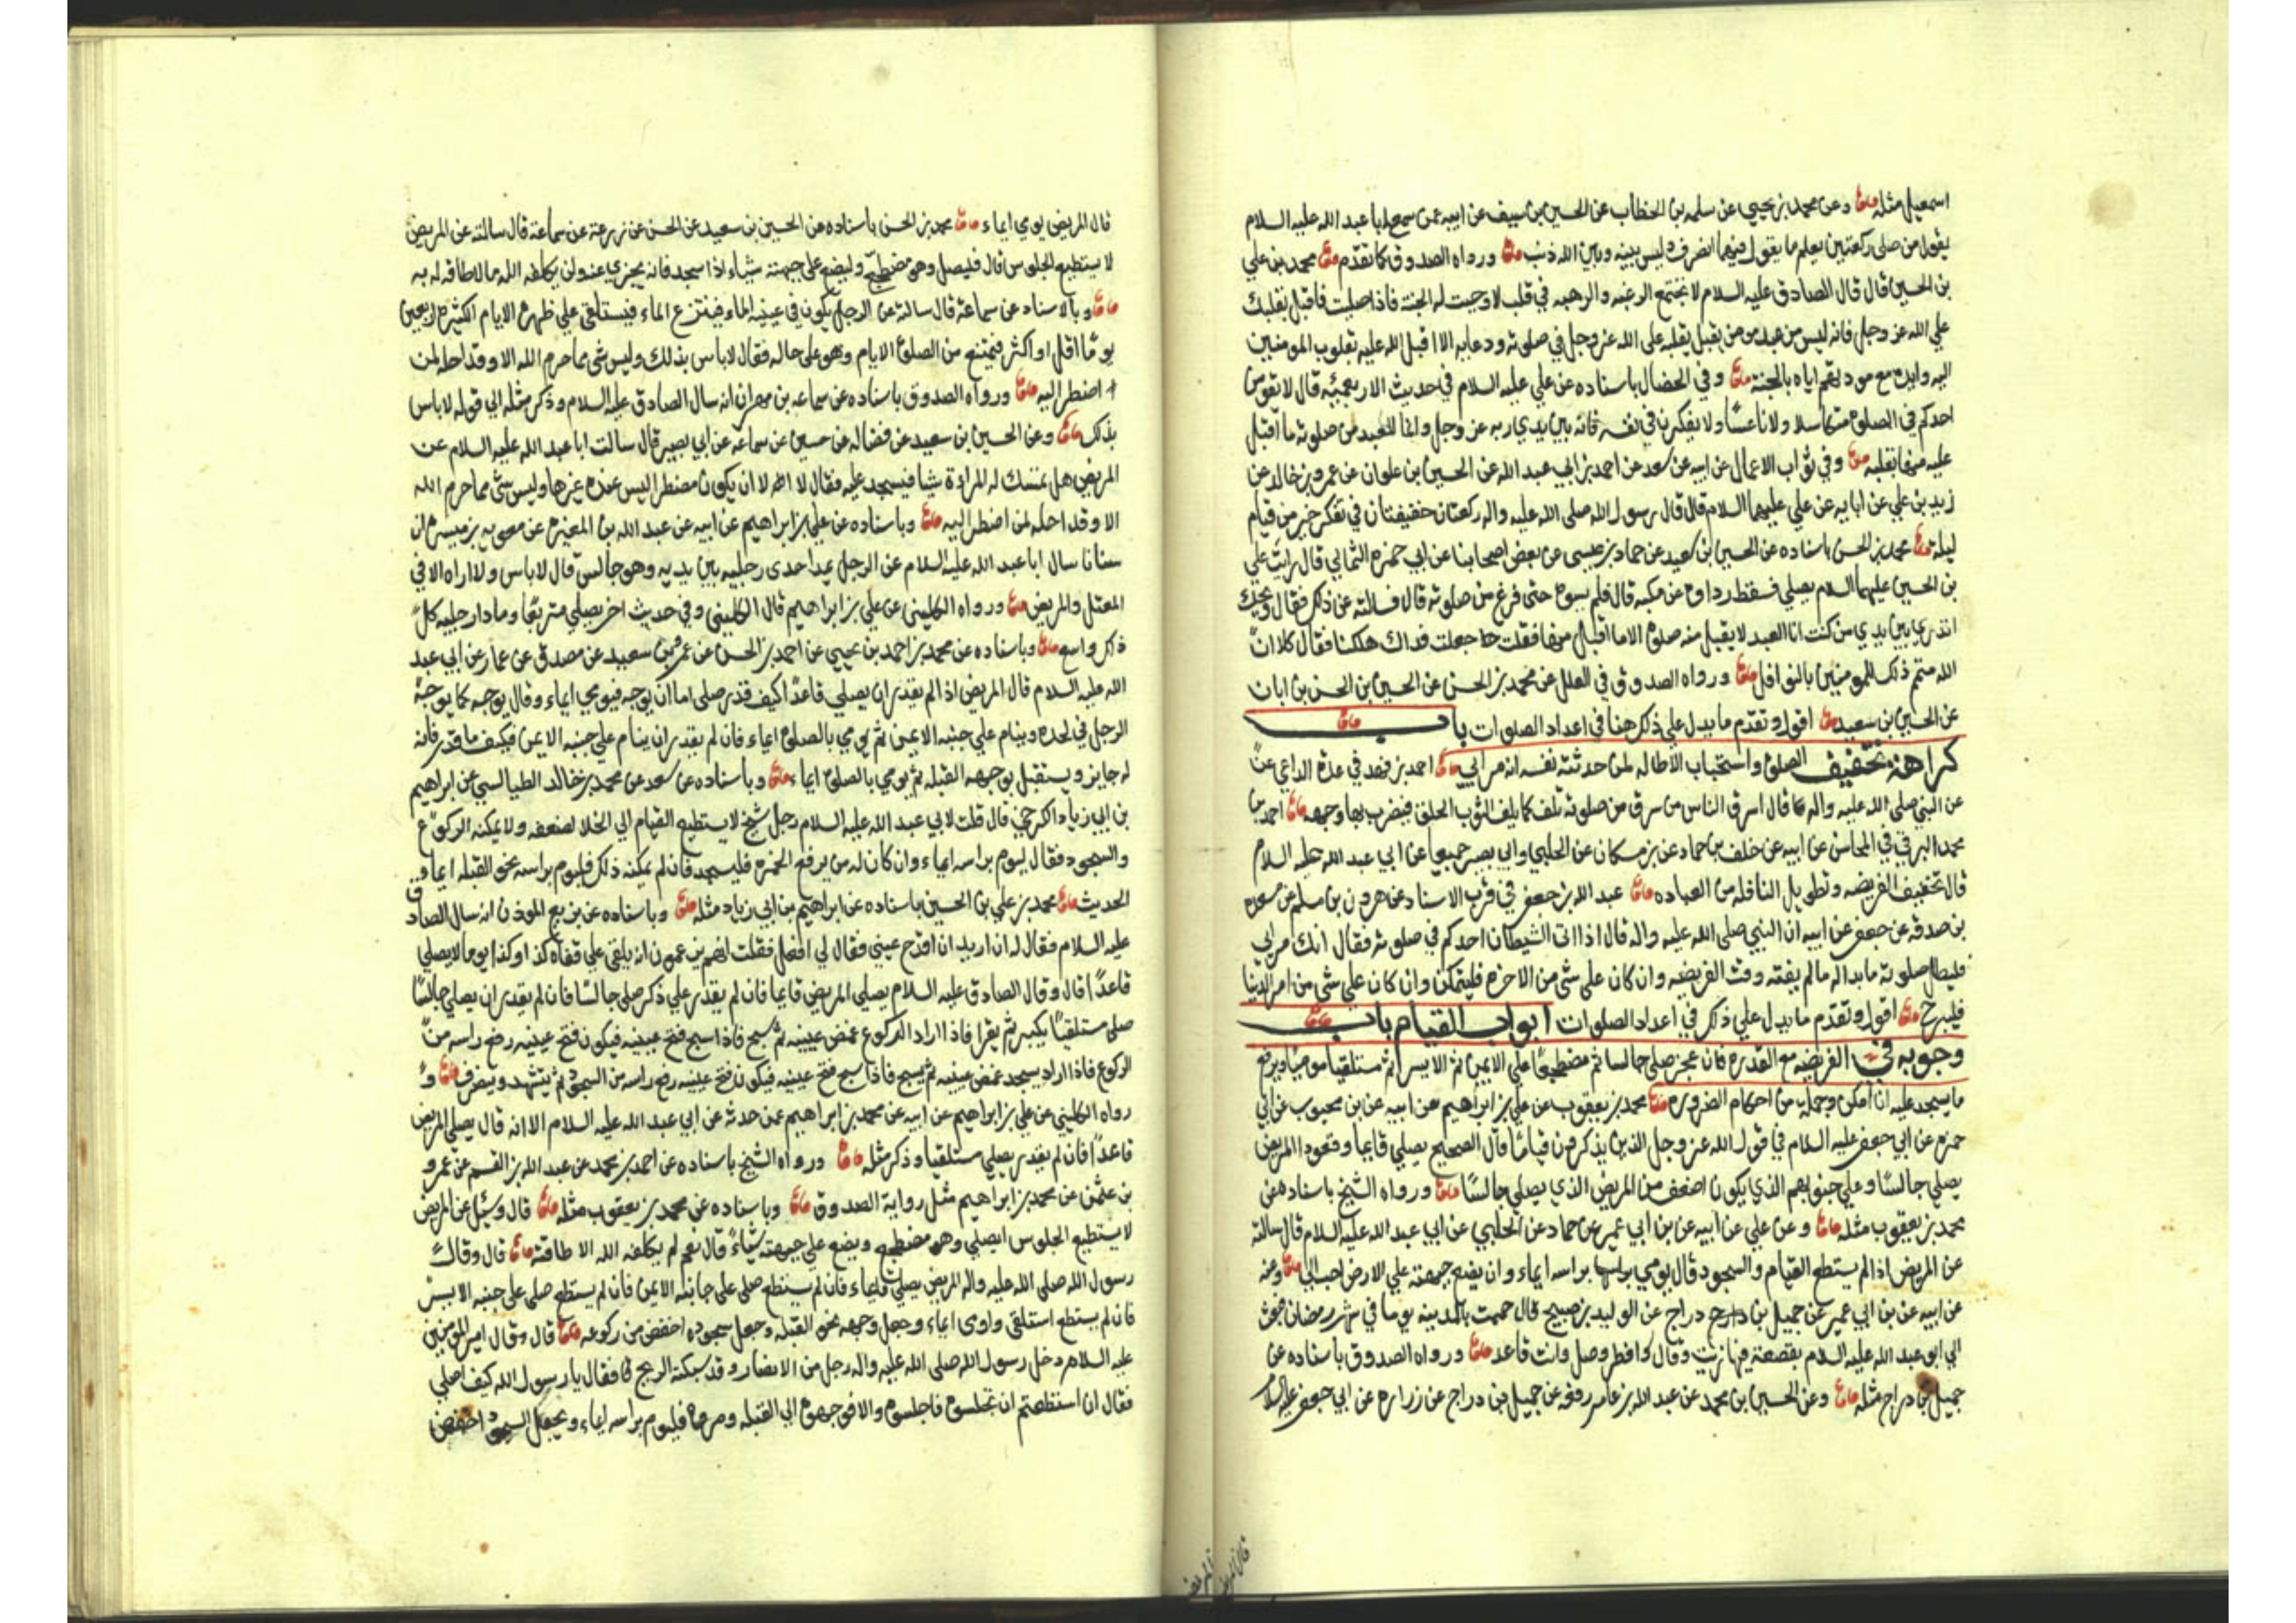 اسمعيل مثله وعن محمد بن يحيى عن سلمه بن الخطاب عن الحسين بن سيف عن ابيه عمن سمع ابا عبد الله عليه السلام
يقول من صلى ركعتين يعلم ما يقول فيهما انصرف وليس بينه وبين الله ذنب ورواه الصدوق كما تقدم محمد بن علي
بن الحسين قال قال الصادق عليه السلام لا تجتمع الرغبه والرهبه في قلب الا وجبت له الجنة فاذا صليت فاقبل بقلبك
علي الله عز وجل فانه ليس من عبد مومن يقبل بقلبه على الله عز وجل في صلوته ودعايه الا اقبل الله عليه بقلوب المومنين
اليه وايده مع مودتهم اياه بالجنة وفي الخصال باسناده عن علي عليه السلام في حديث الاربعمئه قال لا يقومن
احدكم في الصلوة متكاسلا ولا ناعسًا ولا يفكرن في نفسه فانه بين يدي ربه عز وجل وانما للعبد من صلوته ما اقبل
عليه منها بقلبه وفي ثواب الاعمال عن ابيه عن سعد عن احمد بن ابي عبد الله عن الحسين بن علوان عن عمرو بن خالد عن
زيد بن علي عن ابايه عن علي عليهما السلام قال قال رسول الله صلى الله عليه واله ركعتان خفيفتان في تفكر خير من قيام
ليله محمد بن الحسن باسناده عن الحسين بن سعيد عن حماد بن عيسى عن بعض اصحابنا عن ابي حمزه الثمالي قال رايت علي
بن الحسين عليهما السلام يصلي فسقط رداوه عن منكبه قال فلم يسوه حتى فرغ من صلوته قال فسالته عن ذلك فقال ويحك
اتدري بين يدي من كنت ان العبد لا يقبل منه صلوة الا ما اقبل منها فقلت جعلت فداك هلكنا فقال كلا ان
الله متمم ذلك للمومنين بالنوافل ورواه الصدوق في العلل عن محمد بن الحسن عن الحسين بن الحسن بن ابان
عن الحسين بن سعيد اقول وتقدم ما يدل علي ذلك هنا في اعداد الصلوات باب
كراهة تخفيف الصلوة واستحباب الاطاله لمن حدثته نفسه انه مرايي احمد بن فهد في عدة الداعي
عن النبي صلى الله عليه واله قال اسرق الناس من سرق من صلوته تلف كما يلف الثوب الخلق فيضرب بها وجهه احمد بن
محمد البرقي في المحاسن عن ابيه عن خلف بن حماد عن بن مسكان عن الحلبي وابي بصير جميعا عن ابي عبد الله عليه السلام
قال تخفيف الفريضه وتطويل النافله من العباده عبد الله بن جعفر في قرب الاسناد عن هرون بن مسلم عن مسعده
بن صدقه عن جعفر عن ابيه ان النبي صلى الله عليه واله قال اذا اتى الشيطان احدكم في صلوته فقال انك مرايي
فليطل صلوته ما بدا له ما لم يفته وقت الفريضه وان كان على شي من الاخره فليتمكن وان كان علي شي من امر الدنيا
فليبرح اقول وتقدم ما يدل علي ذلك في اعداد الصلوات ابواب القيام باب
وجوبه في الفريضه مع القدره فان عجز صلى جالسا ثم مضطجعًا علي الايمن ثم الايسر ثم مستلقيا موميًا ويرفع
ما يسجد عليه ان امكن وجملة من احكام الضروره محمد بن يعقوب عن علي بن ابراهيم عن ابيه عن بن محبوب عن ابي
حمزه عن ابي جعفر عليه السلام في قول الله عز وجل الذين يذكرون قيامًا قال الصحيح يصلي قايما وقعودا المريض
يصلي جالسًا وعلي جنوبهم الذي يكون اضعف من المريض الذي يصلي جالسًا ورواه الشيخ باسناده عن
محمد بن يعقوب مثله وعن علي عن ابيه عن بن ابي عمير عن حماد عن الحلبي عن ابي عبد الله عليه السلام قال سالته
عن المريض اذا لم يستطع القيام والسجود قال يومي براسه ايماء وان يضع جبهته علي الارض احب الي وعنه
عن ابيه عن بن ابي عمير عن جميل بن دراج عن الوليد بن صبيح قال حممت بالمدينه يوما في شهر رمضان فبعث
الي ابو عبد الله عليه السلام بقصعة فيها زيت وقال افطر وصل وانت قاعد ورواه الصدوق باسناده عن
جميل بن دراج مثله وعن الحسين بن محمد عن عبد الله بن عامر رفعه عن جميل بن دراج عن زراره عن ابي جعفر عليه السلام
قال المريض
قال المريض يومي ايماء محمد بن الحسن باسناده عن الحسين بن سعيد عن الحسن عن زرعة عن سماعة قال سالته عن المريض
لا يستطيع الجلوس قال فليصل وهو مضطجع وليضع على جبهته شيئاء اذا سجد فانه يجزي عنه ولن يكلفه الله ما لا طاقة له به
وبالاسناد عن سماعة قال سالته عن الرجل يكون في عينيه الماء فينتزع الماء فيستلقي علي ظهره الايام الكثيره اربعين
يومًا اقل او اكثر فيمتنع من الصلوة الايام وهو على حاله فقال لا باس بذلك وليس شي مما حرم الله الا وقد احله لمن
اضطر اليه ورواه الصدوق باسناده عن سماعه بن مهران انه سال الصادق عليه السلام وذكر مثله الي قوله لا باس
بذلك وعن الحسين بن سعيد عن فضاله عن حسين عن سماعه عن ابي بصير قال سالت ابا عبد الله عليه السلام عن
المريض هل تمسك له المراة شيئا فيسجد عليه فقال لا الا ان يكون مضطرا ليس عنده غيرها وليس شي مما حرم الله
الا وقد احله لمن اضطر اليه وباسناده عن علي بن ابراهيم عن ابيه عن عبد الله بن المغيره عن معويه بن ميسره ان
سنانا سال ابا عبد الله عليه السلام عن الرجل يمد احدى رجليه بين يديه وهو جالس قال لا باس ولا اراه الا في
المعتل والمريض ورواه الكليني عن علي بن ابراهيم قال الكليني وفي حديث اخر يصلي متربعًا ومادا رجليه كل
ذلك واسع وباسناده عن محمد بن احمد بن يحيي عن احمد بن الحسن عن عمرو بن سعيد عن مصدق عن عمار عن ابي عبد
الله عليه السلام قال المريض اذا لم يقدر ان يصلي قاعدًا كيف قدر صلى اما ان يوجه فيومي ايماء وقال يوجه كما يوجه
الرجل في لحده وينام علي جنبه الايمن ثم يومي بالصلوة ايماء فان لم يقدر ان ينام علي جنبه الايمن فكيف ما قدر فانه
له جايز ويستقبل بوجهه القبله ثم يومي بالصلوة ايماء وباسناده عن سعد عن محمد بن خالد الطيالسي عن ابراهيم
بن ابي زياد الكرخي قال قلت لابي عبد الله عليه السلام رجل شيخ لا يستطيع القيام الي الخلا لضعفه ولا يمكنه الركوع
والسجود فقال ليوم براسه ايماء وان كان له من يرفع الخمره فليسجد فان لم يمكنه ذلك فليوم براسه نحو القبله ايماء
الحديث محمد بن علي بن الحسين باسناده عن ابراهيم بن ابي زياد مثله وباسناده عن بزيع الموذن انه سال الصادق
عليه السلام فقال له ان اريد ان اقدح عيني فقال لي افعل فقلت انهم يزعمون انه يلقى علي قفاه كذا وكذا يوما لا يصلي
قاعدًا قال وقال الصادق عليه السلام يصلي المريض قايما فان لم يقدر علي ذلك صلى جالسًا فان لم يقدر ان يصلي جالسًا
صلى مستلقيًا يكبر ثم يقرا فاذا اراد الركوع غمض عينيه ثم سبح فاذا سبح فتح عينيه فيكون فتح عينيه رفع راسه من
الركوع فاذا اراد يسجد غمض عينيه ثم يسبح فاذا سبح فتح عينيه فيكون فتح عينيه رفع راسه من السجود ثم يتشهد وينصرف و
رواه الكليني عن علي بن ابراهيم عن ابيه عن محمد بن ابراهيم عمن حدثه عن ابي عبد الله عليه السلام الا انه قال يصلي المريض
قاعدًا فان لم يقدر يصلي مستلقيا وذكر مثله ورواه الشيخ باسناده عن احمد بن محمد عن عبد الله بن القسم عن عمرو
بن عثمن عن محمد بن ابراهيم مثل رواية الصدوق وباسناده عن محمد بن يعقوب مثله قال وسئل عن المريض
لا يستطيع الجلوس ايصلي وهو مضطجع ويضع علي جبهته شياءً قال نعم لم يكلفه الله الا طاقته قال وقال
رسول الله صلى الله عليه واله المريض يصلي قايماء فان لم يستطع صلى على جانبه الايمن فان لم يستطع صلى على جنبه الايسر
فان لم يستطع استلقى واومى ايماء وجعل وجهه نحو القبله وجعل سجوده اخفض من ركوعه قال وقال امير المومنين
عليه السلام دخل رسول الله صلى الله عليه واله رجل من الانصار وقد سبكة الريح فقال يا رسول الله كيف اصلي
فقال ان استطعتم ان تجلسوه فاجلسوه والا فوجهوه الي القبله ومروه فليوم براسه ايماء ويجعل السجود اخفض